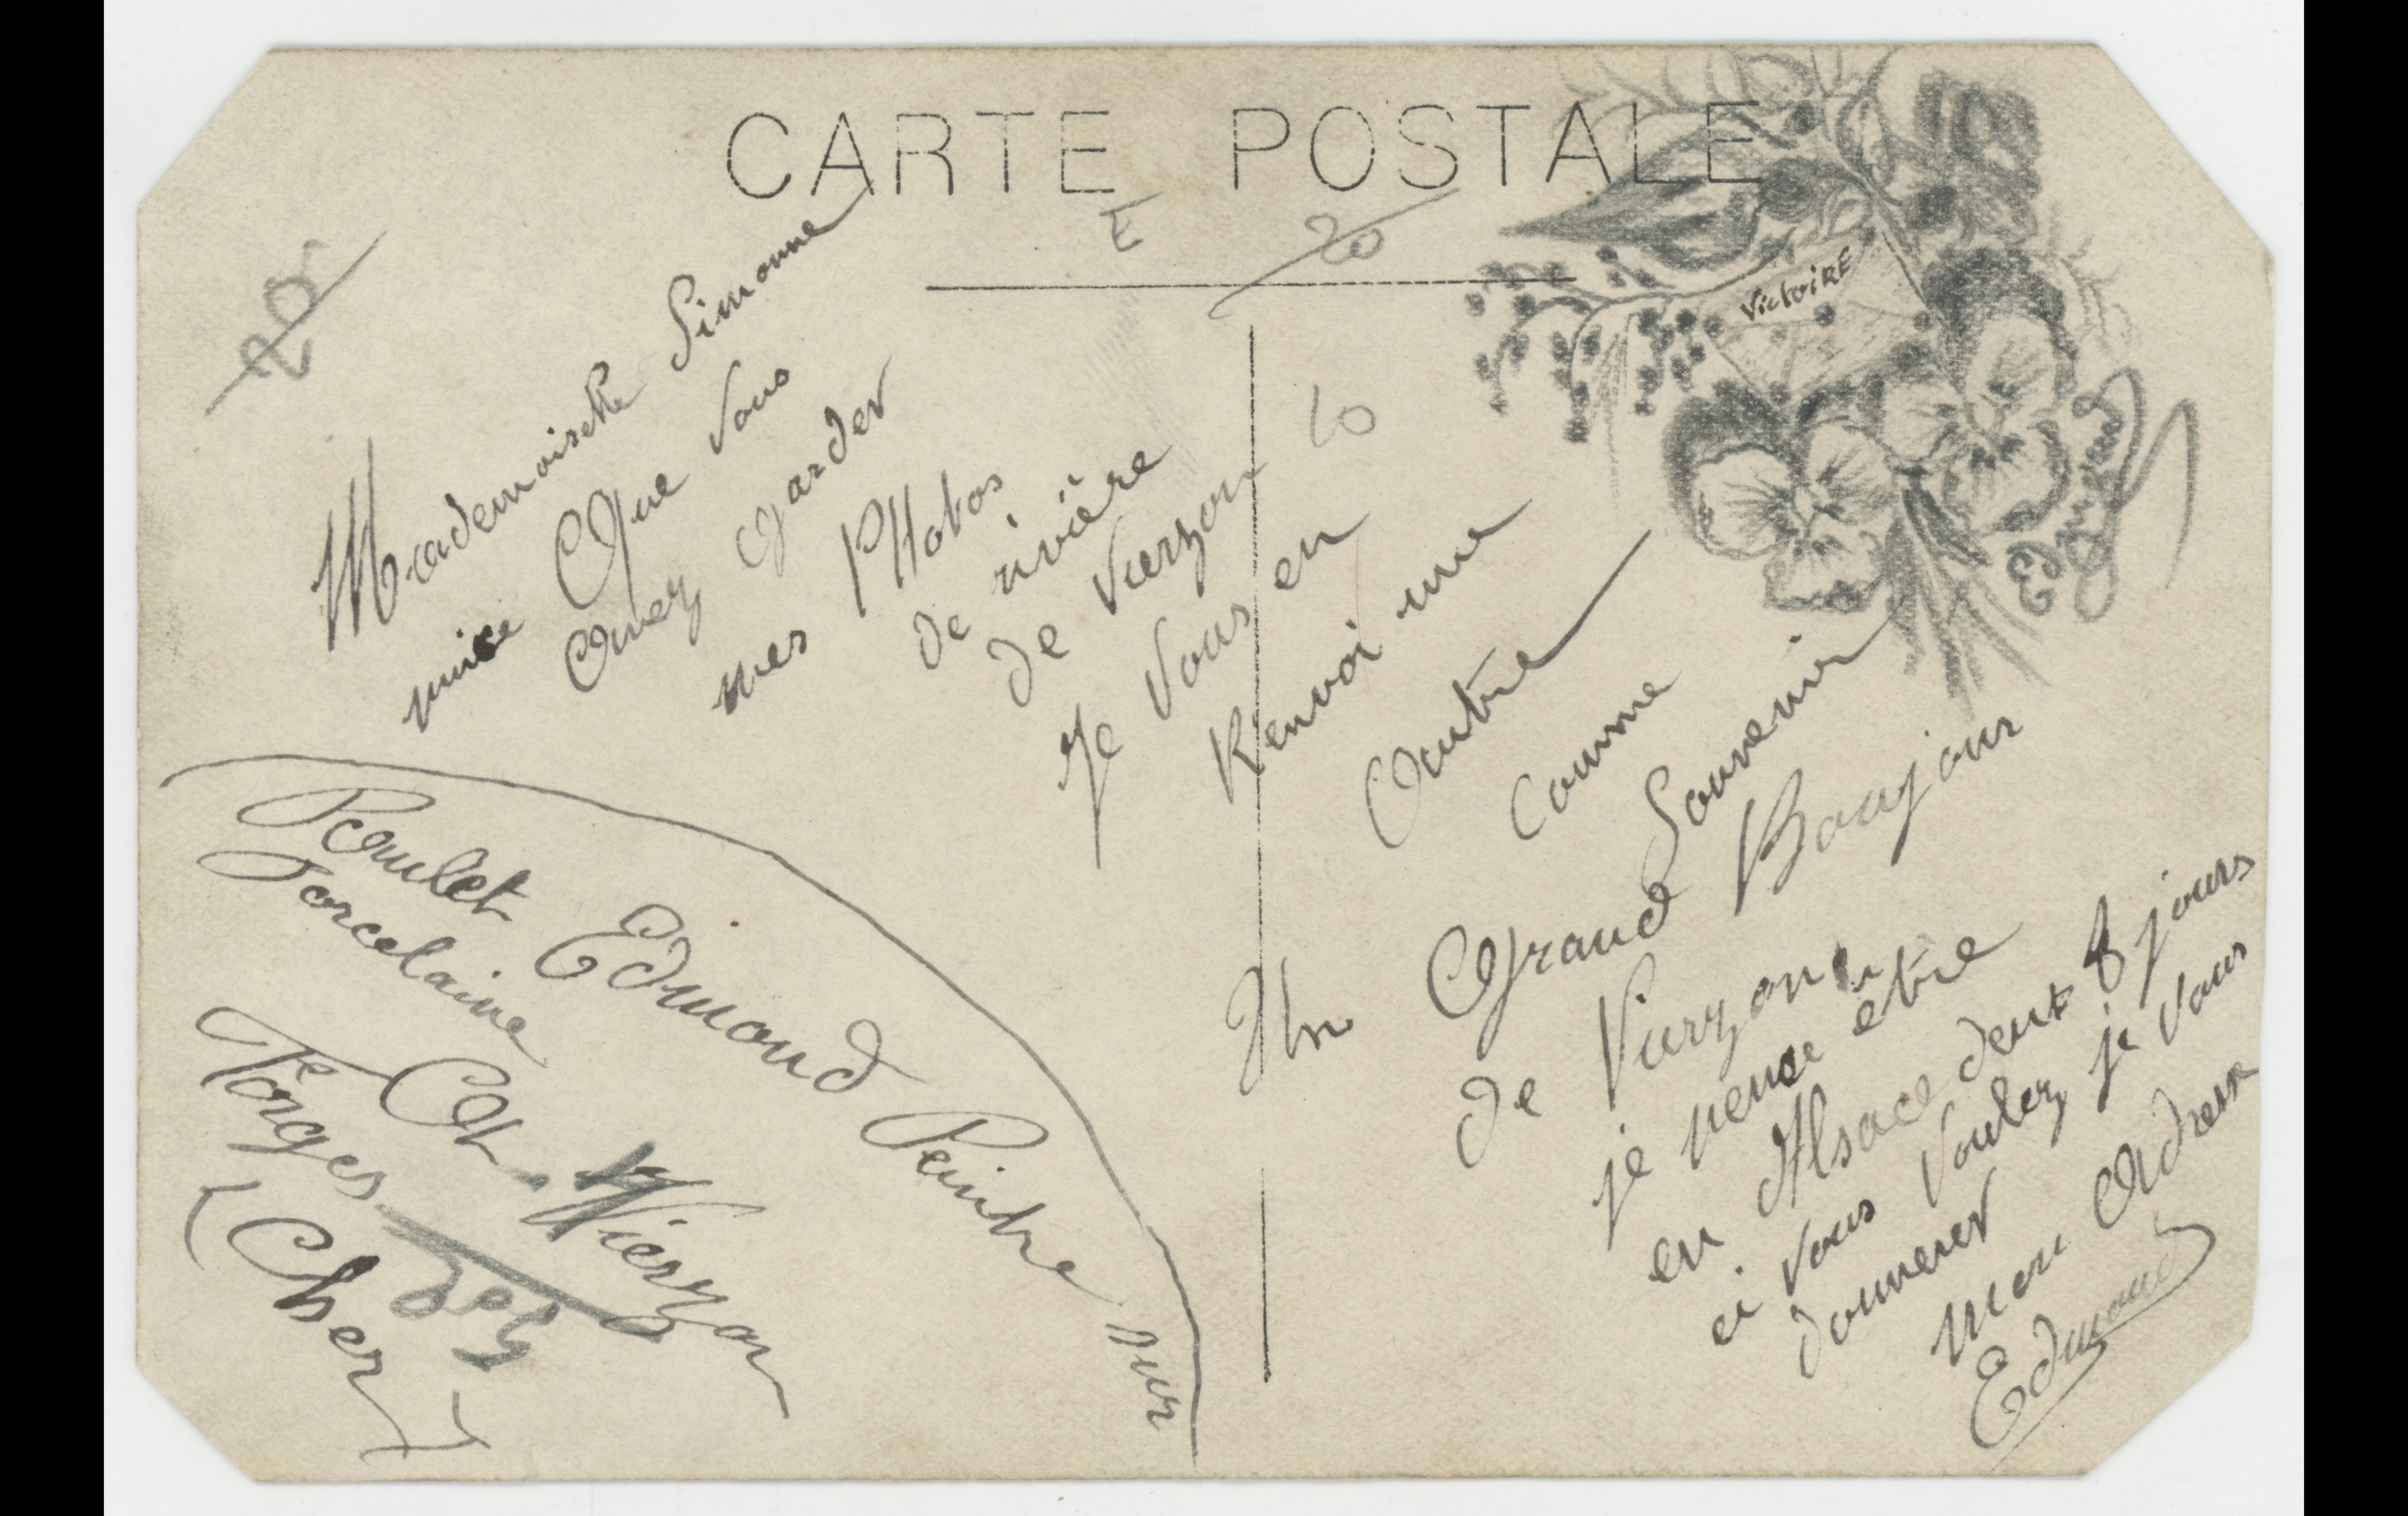 CARTE POSTALE
E
20
20
10
VictoiRE
Edmond
Mademoiselle Simonne
puisse Que Vous
avez garder
mes PHotos
de rivière
de Vierzon
Je Vous en
Renvoi une
Autre
Comme
Souvenir
Un Grand Bonjour
de Vierzon
je pense être
en Alsace dans 8 jours
ci Vous Voulez je Vous
donnerer
mon Adresse
Edmond
Poulet Edmond Peintre sur
Porcelaine
Vierzon
Forges
(Cher)